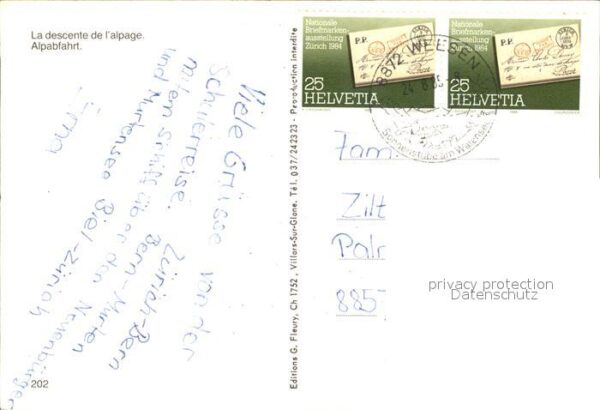 La descente de l'alpage.
Alpabfahrt.
Viele Grüsse von der
Schulerreise. Zürich-Bern
Bern-Murten
mit dem Schiff über den Neuenburger
und Murtensee Biel-Zürich
Erna
202
Editions G. Fleury, Ch 1752, Villars-Sur-Glane, Tél. 037/242323 - Reproduction interdite
Nationale
Briefmarken-
ausstellung
Zürich 1984
P.P.
25
HELVETIA
Nationale
Briefmarken-
ausstellung
Zürich 1984
P.P.
25
HELVETIA
8872 WEESEN
Fam.
Zilt
Palr
885
privacy protection
Datenschutz